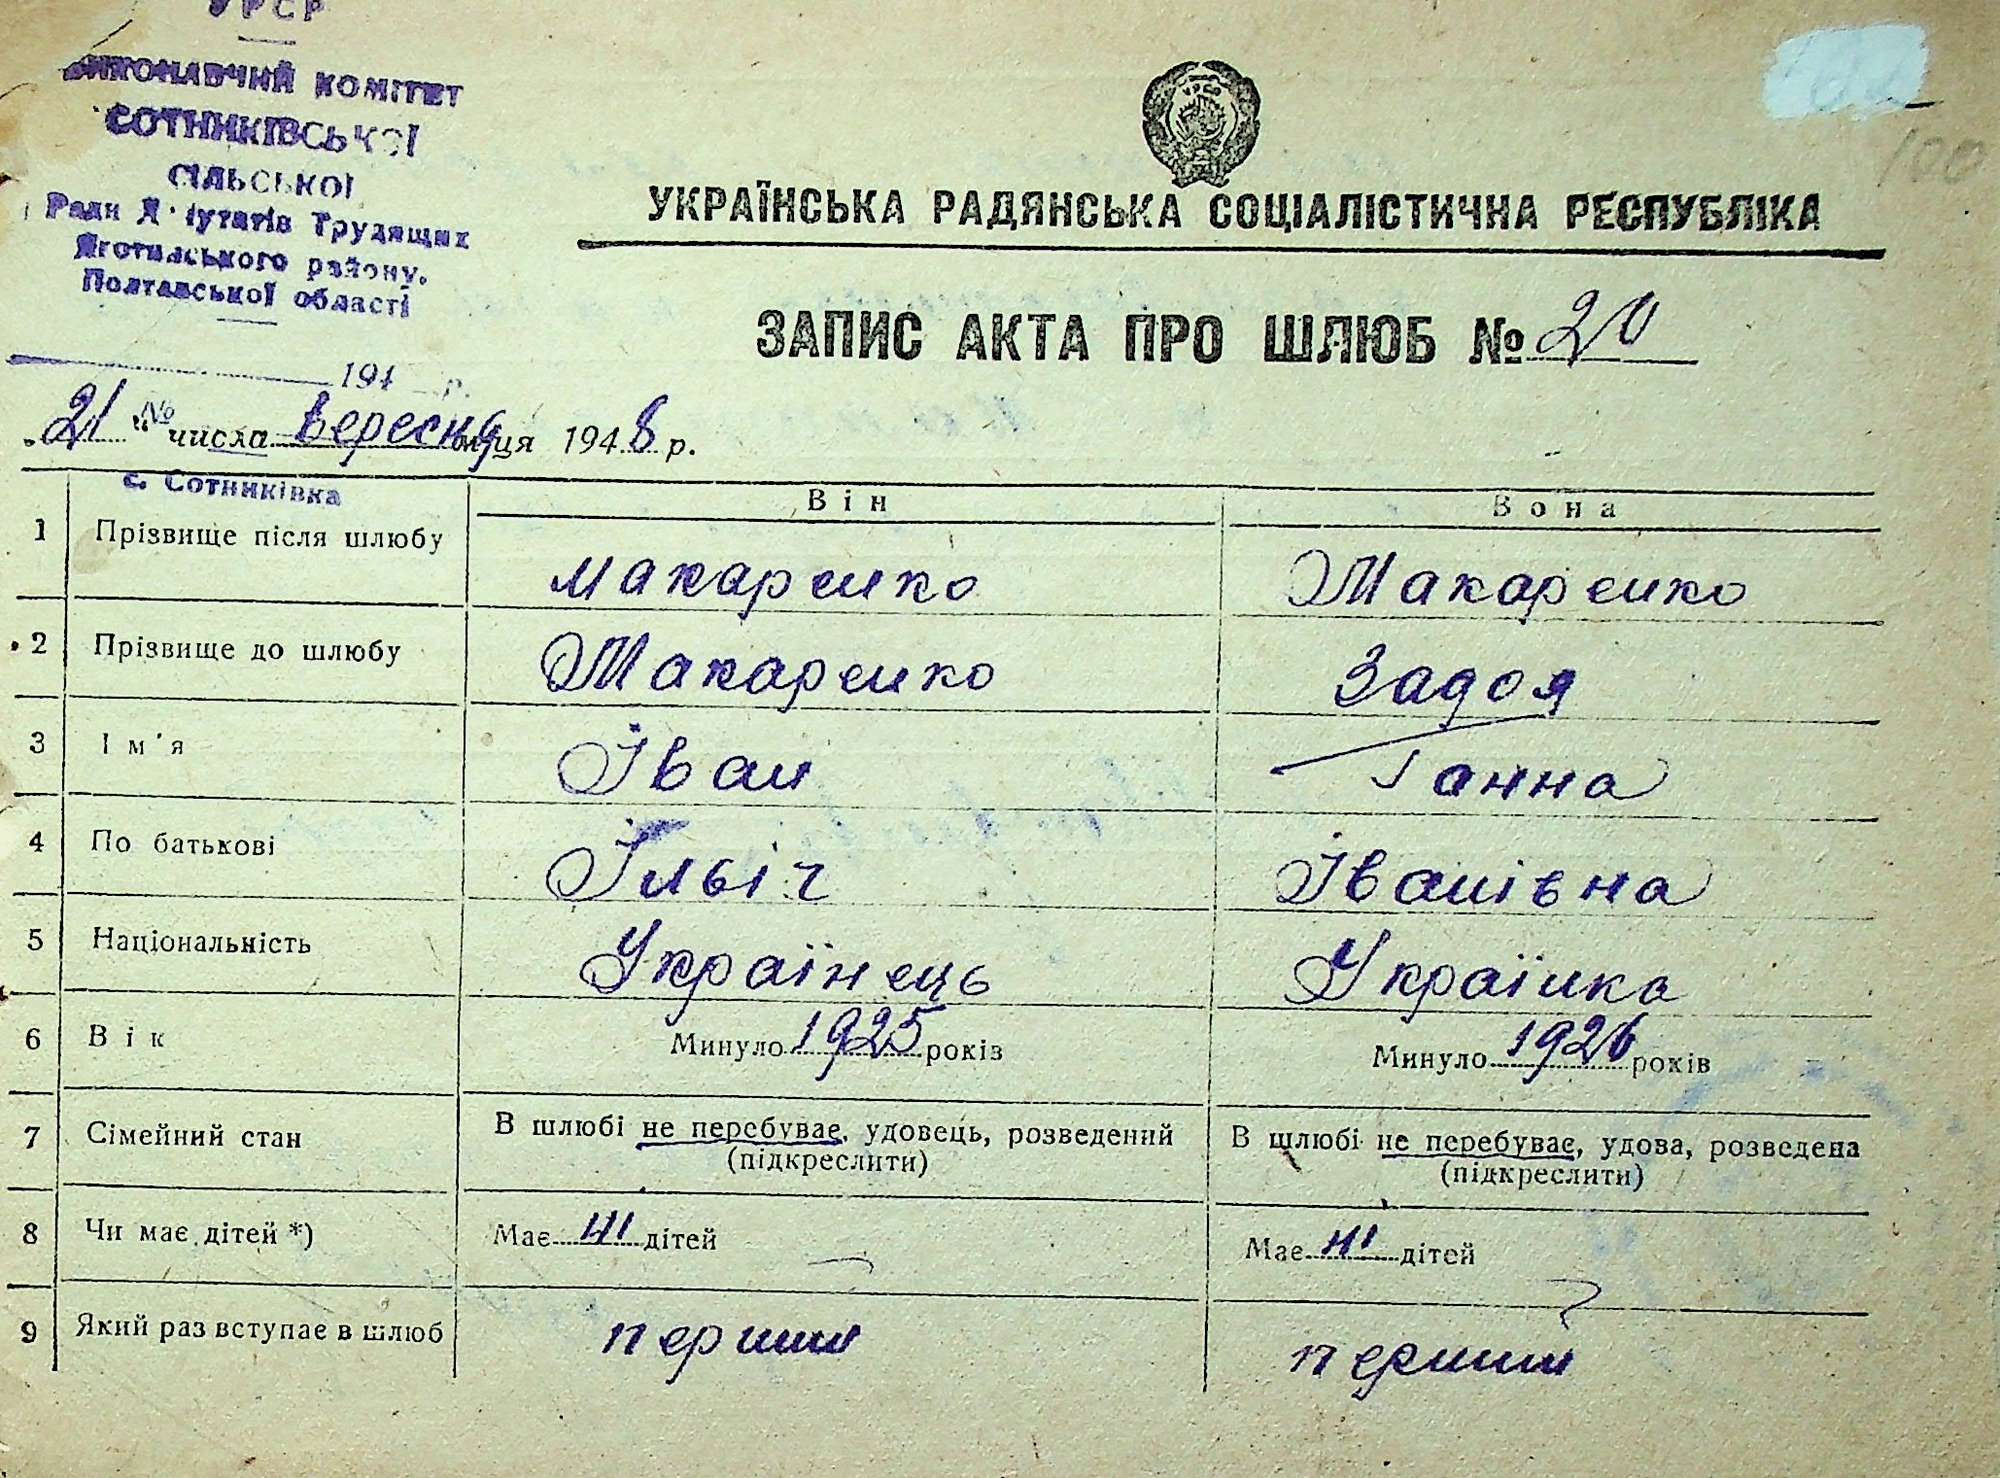 УРСР
ВИКОНАВЧИЙ КОМІТЕТ
СОТНИКІВСЬКОЇ
СІЛЬСЬКОЇ
Ради Депутатів Трудящих
Яготинського району.
Полтавської області
194 р.
№
УРСР
100
УКРАЇНСЬКА РАДЯНСЬКА СОЦІАЛІСТИЧНА РЕСПУБЛІКА
ЗАПИС АКТА ПРО ШЛЮБ № 20
„21" числа вересня м-ця 1948 р.
с. Сотниківка
Він Вона
1 Прізвище після шлюбу макаренко Макаренко
2 Прізвище до шлюбу Макаренко Задоя
3 Ім'я Іван Ганна
4 По батькові Ільіч Іванівна
5 Національність Українець Українка
6 Вік Минуло 1925 років Минуло 1926 років
7 Сімейний стан В шлюбі не перебуває, удовець, розведений В шлюбі не перебуває, удова, розведена
(підкреслити) (підкреслити)
8 Чи має дітей *) Має ні дітей Має ні дітей
9 Який раз вступає в шлюб перший перший